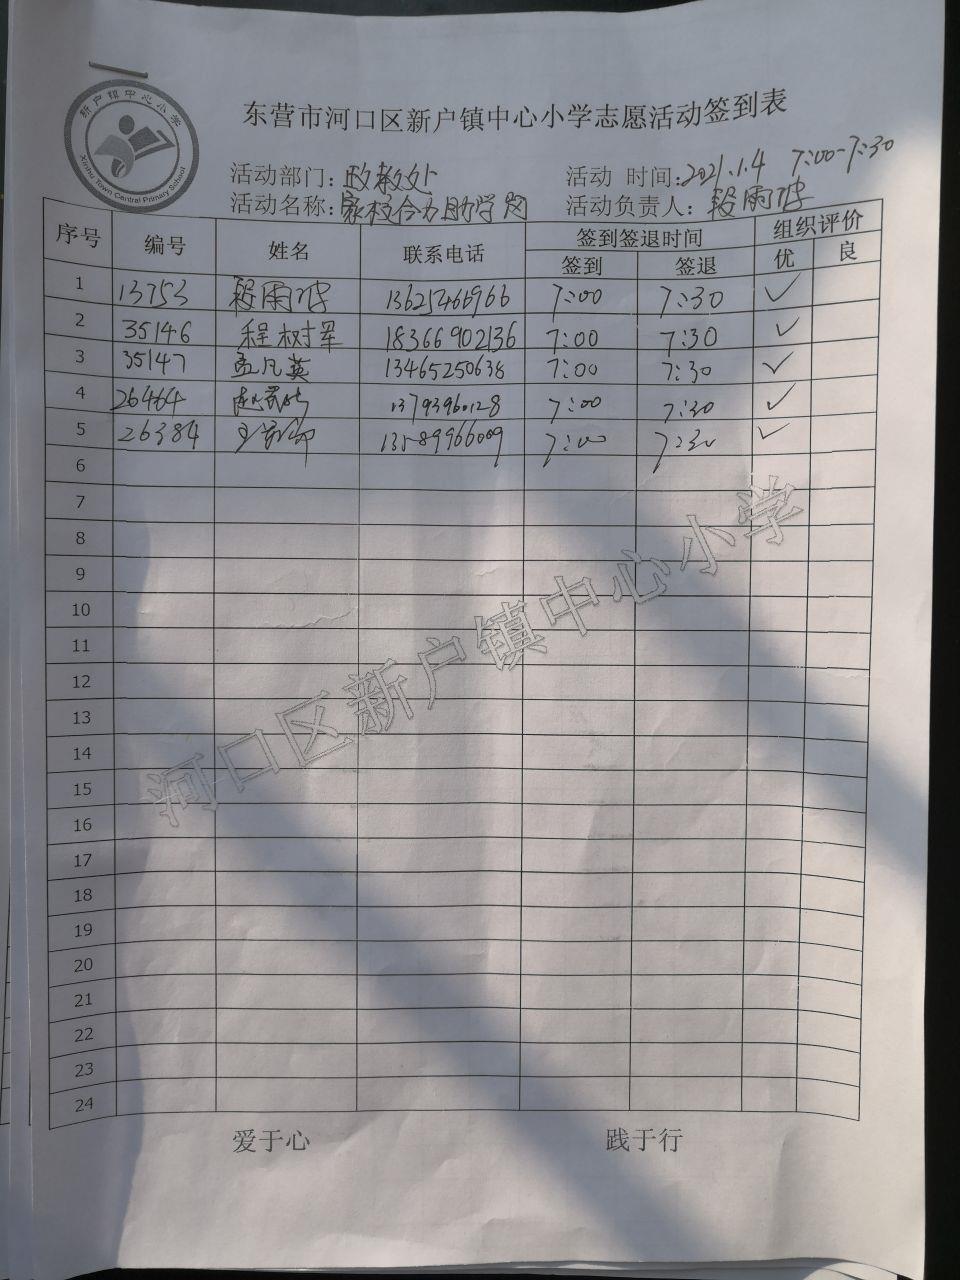 新户镇中心小学
Xinhu Town Central Primary School
东营市河口区新户镇中心小学志愿活动签到表
活动部门：政教处 活动 时间：2021.1.4 7:00-7:30
活动名称：家校合力助学岗 活动负责人：段雨
序号 编号 姓名 联系电话 签到签退时间 组织评价
签到 签退 优 良
1 13753 段雨 13625466966 7:00 7:30 ✓
2 35146 程树军 18366902136 7:00 7:30 ✓
3 35147 孟凡英 13465250638 7:00 7:30 ✓
4 26464 赵 13793960128 7:00 7:30 ✓
5 26384 王 13589966009 7:00 7:30 ✓
6
7
8
9
10
11
12
13
14
15
16
17
18
19
20
21
22
23
24
河口区新户镇中心小学
爱于心 践于行